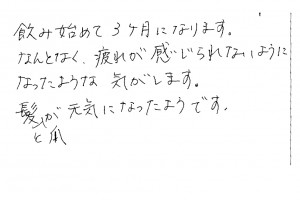 飲み始めて3ヶ月になります。
なんとなく、疲れが感じられないように
なったような気がします。
髪と爪が元気になったようです。